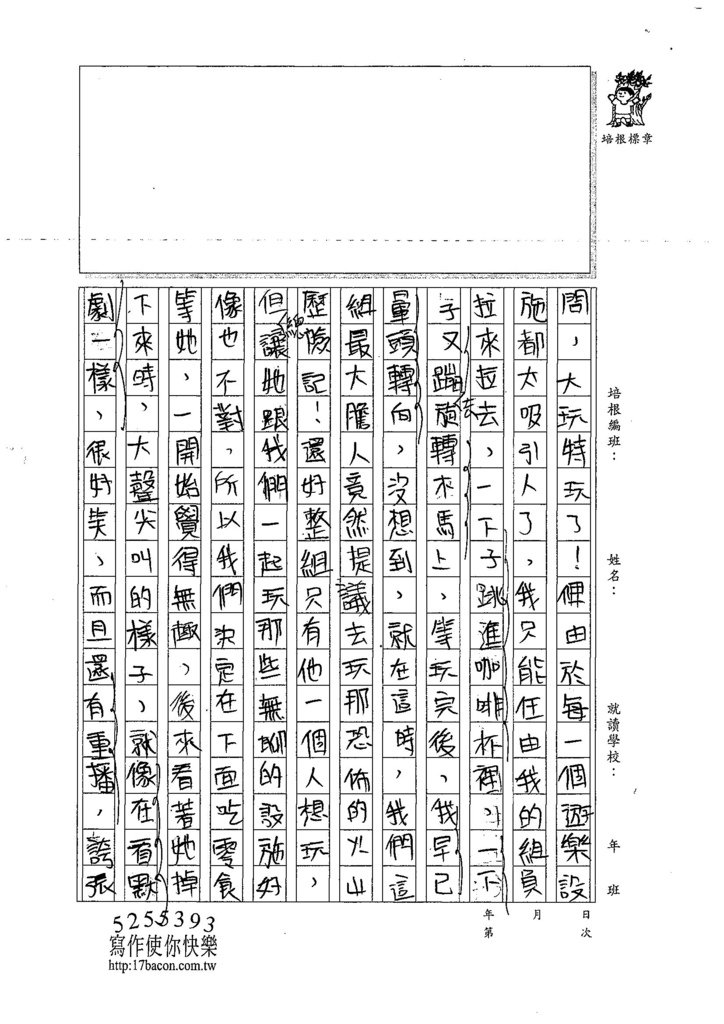 培根標章
培根編班：
姓名：
就讀學校：
年 班
周，大玩特玩了！但由於每一個遊樂設
施都太吸引人了，我只能任由我的組員
拉來拉去，一下子跳進咖啡杯裡，一下
子又蹦去旋轉木馬上，等玩完後，我早已
暈頭轉向，沒想到，就在這時，我們這
組最大膽人竟然提議去玩那恐怖的火山
歷險記！還好整組只有他一個人想玩，
但總讓她跟我們一起玩那些無聊的設施好
像也不對，所以我們決定在下面吃零食
等她，一開始覺得無趣，後來看著她掉
下來時，大聲尖叫的樣子，就像在看默
劇一樣，很好笑，而且還有重播，誇張
年 月 日
第 次
5255393
寫作使你快樂
http:17bacon.com.tw